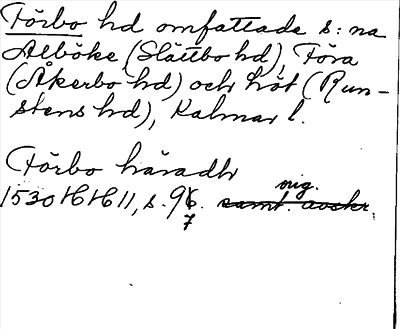 Förbo hd omfattade s:na
Alböke (Slättbo hd), Föra
(Åkerbo hd) och Löt (Run-
stens hd), Kalmar l.
Förbo häradh
orig.
1530 16/6 11, s. 96. samt. avskr.
7